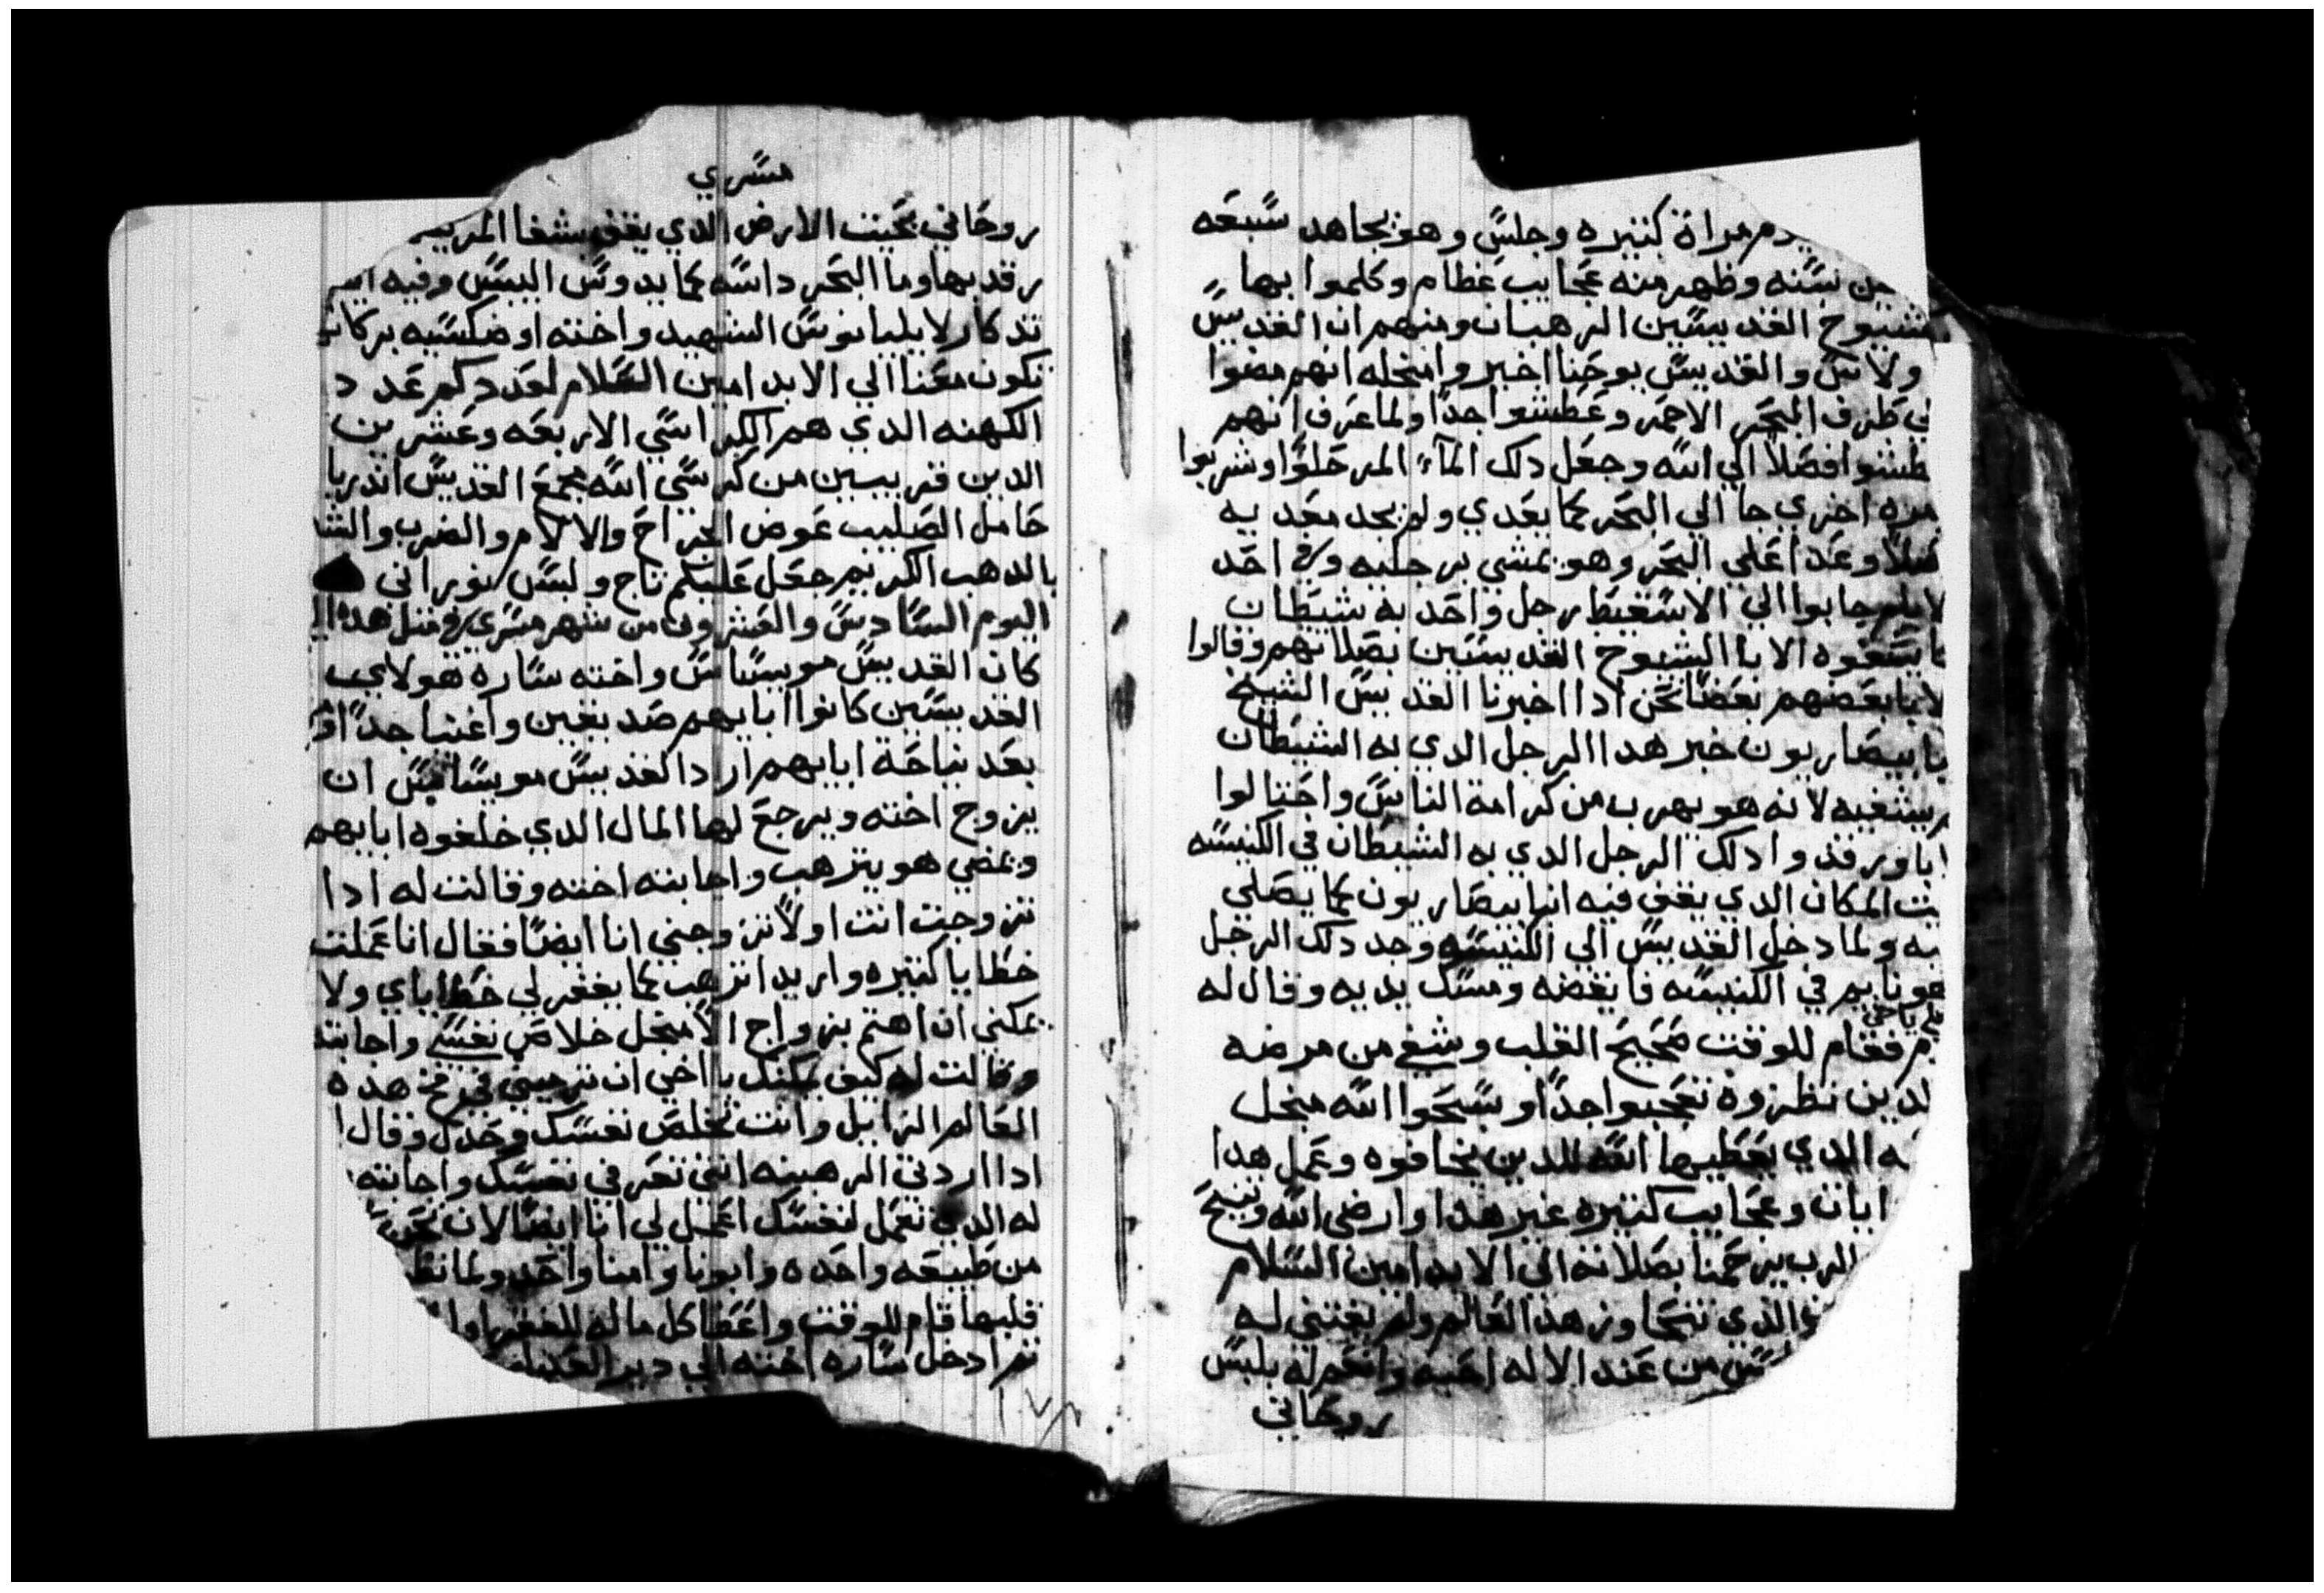 مراة كتيره وجلس وهو يجاهد سبعه
سنه وظهر منه عجايب عظام وكلموا بها
شيوخ القديسين الرهبان ومنهم ان القديس
ولاس والقديس يوحنا اخبر وامنجله انهم مضوا
في طرف البحر الاحمر وعطشوا جدا ولما عرف انهم
طشوا فصلا الي الله وجعل دلك المآء المر حلوا وشربوا
مره اخري جا الي البحر كما يعدي ولم يجد معديه
صلا وعدا علي البحر وهو يمشي برجليه وفي احد
لايام جابوا الي الاسقيط رجل واحد به شيطان
يشفوه الابا الشيوخ القديسين بصلاتهم وقالوا
لابا بعضهم بعضا نحن ادا اخبرنا القديس الشيخ
با بيصاريون خبر هدا الرجل الدي به الشيطان
يشفيه لانه هو يهرب من كرامة الناس واحتالوا
ابا ورقدوا دلك الرجل الدي به الشيطان في الكنيسه
المكان الدي يقف فيه انبا بيصاريون كما يصلي
به ولما دخل القديس الي الكنيسه وجد دلك الرجل
نايم في الكنيسه فايقضه ومسك يديه وقال له
قم يا اخي
فقام للوقت صحيح القلب وشفي من مرضه
الدين نظروه تعجبوا جدا وسبحوا الله منجل
الدي يعطيها الله للدين يخافوه وعمل هدا
ايات وعجايب كتيره غير هدا وارضي الله وتنيح
الرب يرحمنا بصلاته الي الابد امين السلام
الدي تنحا وز هدا العالم ولم يقتني له
من عند الاله احبه وانعم له بلبس
روحاني
مسري
روحاني تحيت الارض الدي يقف بشفا المر
رقد بها وما البحر داسه كما يدوس اليبس وفيه ايضا
تدكار لايليانوس الشهيد واخته اوضكسيه بركاتهم
تكون معنا الي الابد امين السلام لعدد كم عدد
الكهنه الدي هم الكراسي الاربعه وعشرين
الدين قريبين من كرسي الله بجمع القديس اندريا
حامل الصليب عوض الجراح والالام والضرب والشتا
بالدهب الكريم جعل عليكم تاج ولبس نوراني
اليوم السادس والعشرون من شهر مسري في متل هدا ال
كان القديس مويساس واخته ساره هولاي
القديسين كانوا ابايهم صديقين واغنيا جدا
بعد نياحة ابايهم اراد القديس مويساس ان
يزوج اخته ويرجع لها المال الدي خلفوه ابايهم
ويمضي هو يترهب واجابته اخته وقالت له ادا
تزوجت انت اولا تزوجني انا ايضا فقال انا عملت
خطايا كتيره واريد اترهب كما يغفر لي خطاياي ولا
يمكني ان اهتم بزواج الا منجل خلاص نفسي واجابته
وقالت له كيف يمكنك يا اخي ان ترميني في فخ هده
العالم الزايل وانت تخلص نفسك وحدك وقال
ادا اردتي الرهبنه انتي تعرفي نفسك واجابته
له الدي تعمل لنفسك اعمل لي انا ايضا لان نحن
من طبيعه واحده وابونا وامنا واحد ولما نظر
قلبها قام للوقت واعطا كل ماله للفقرا
تم ادخل ساره اخته الي دير العدارا